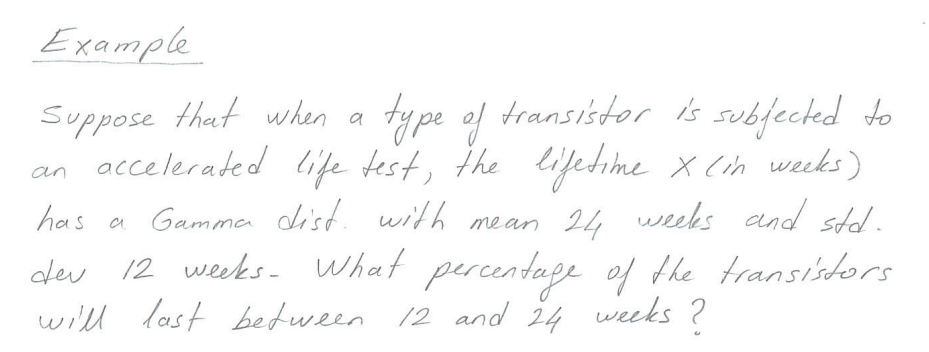 Example
Suppose that when a type of transistor is subjected to
an accelerated life test, the lifetime X (in weeks)
has a Gamma dist. with mean 24 weeks and std.
dev 12 weeks. What percentage of the transistors
will last between 12 and 24 weeks?